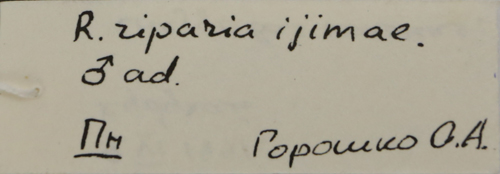 R. riparia ijimae.
♂ ad.
Пн Горошко О.А.